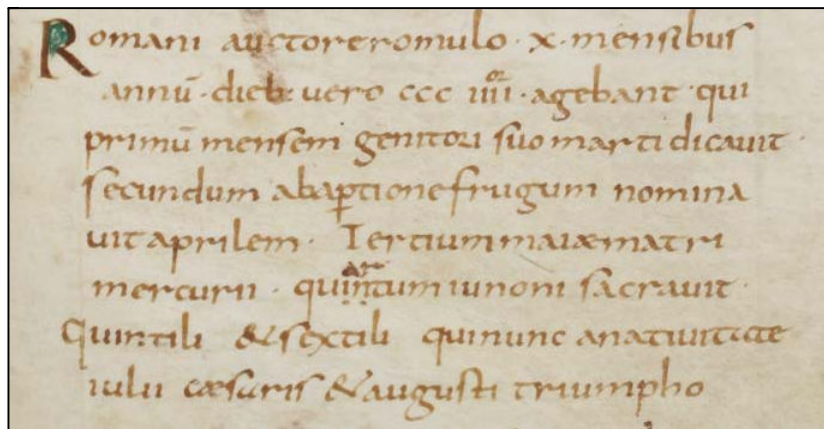 Romani auctore romulo · x · mensibus
annū · dieb; uero ccc iiii · agebant · qui
primū mensem genitori suo marti dicauit ·
secundum ab aꝑtione frugum nomina
uit aprilem · Tertium maiæ matri
mercurii · quintum iunoni sacrauit ·
Quintili & sextili qui nunc a natiuitate
iulii cæsaris & augusti triumpho